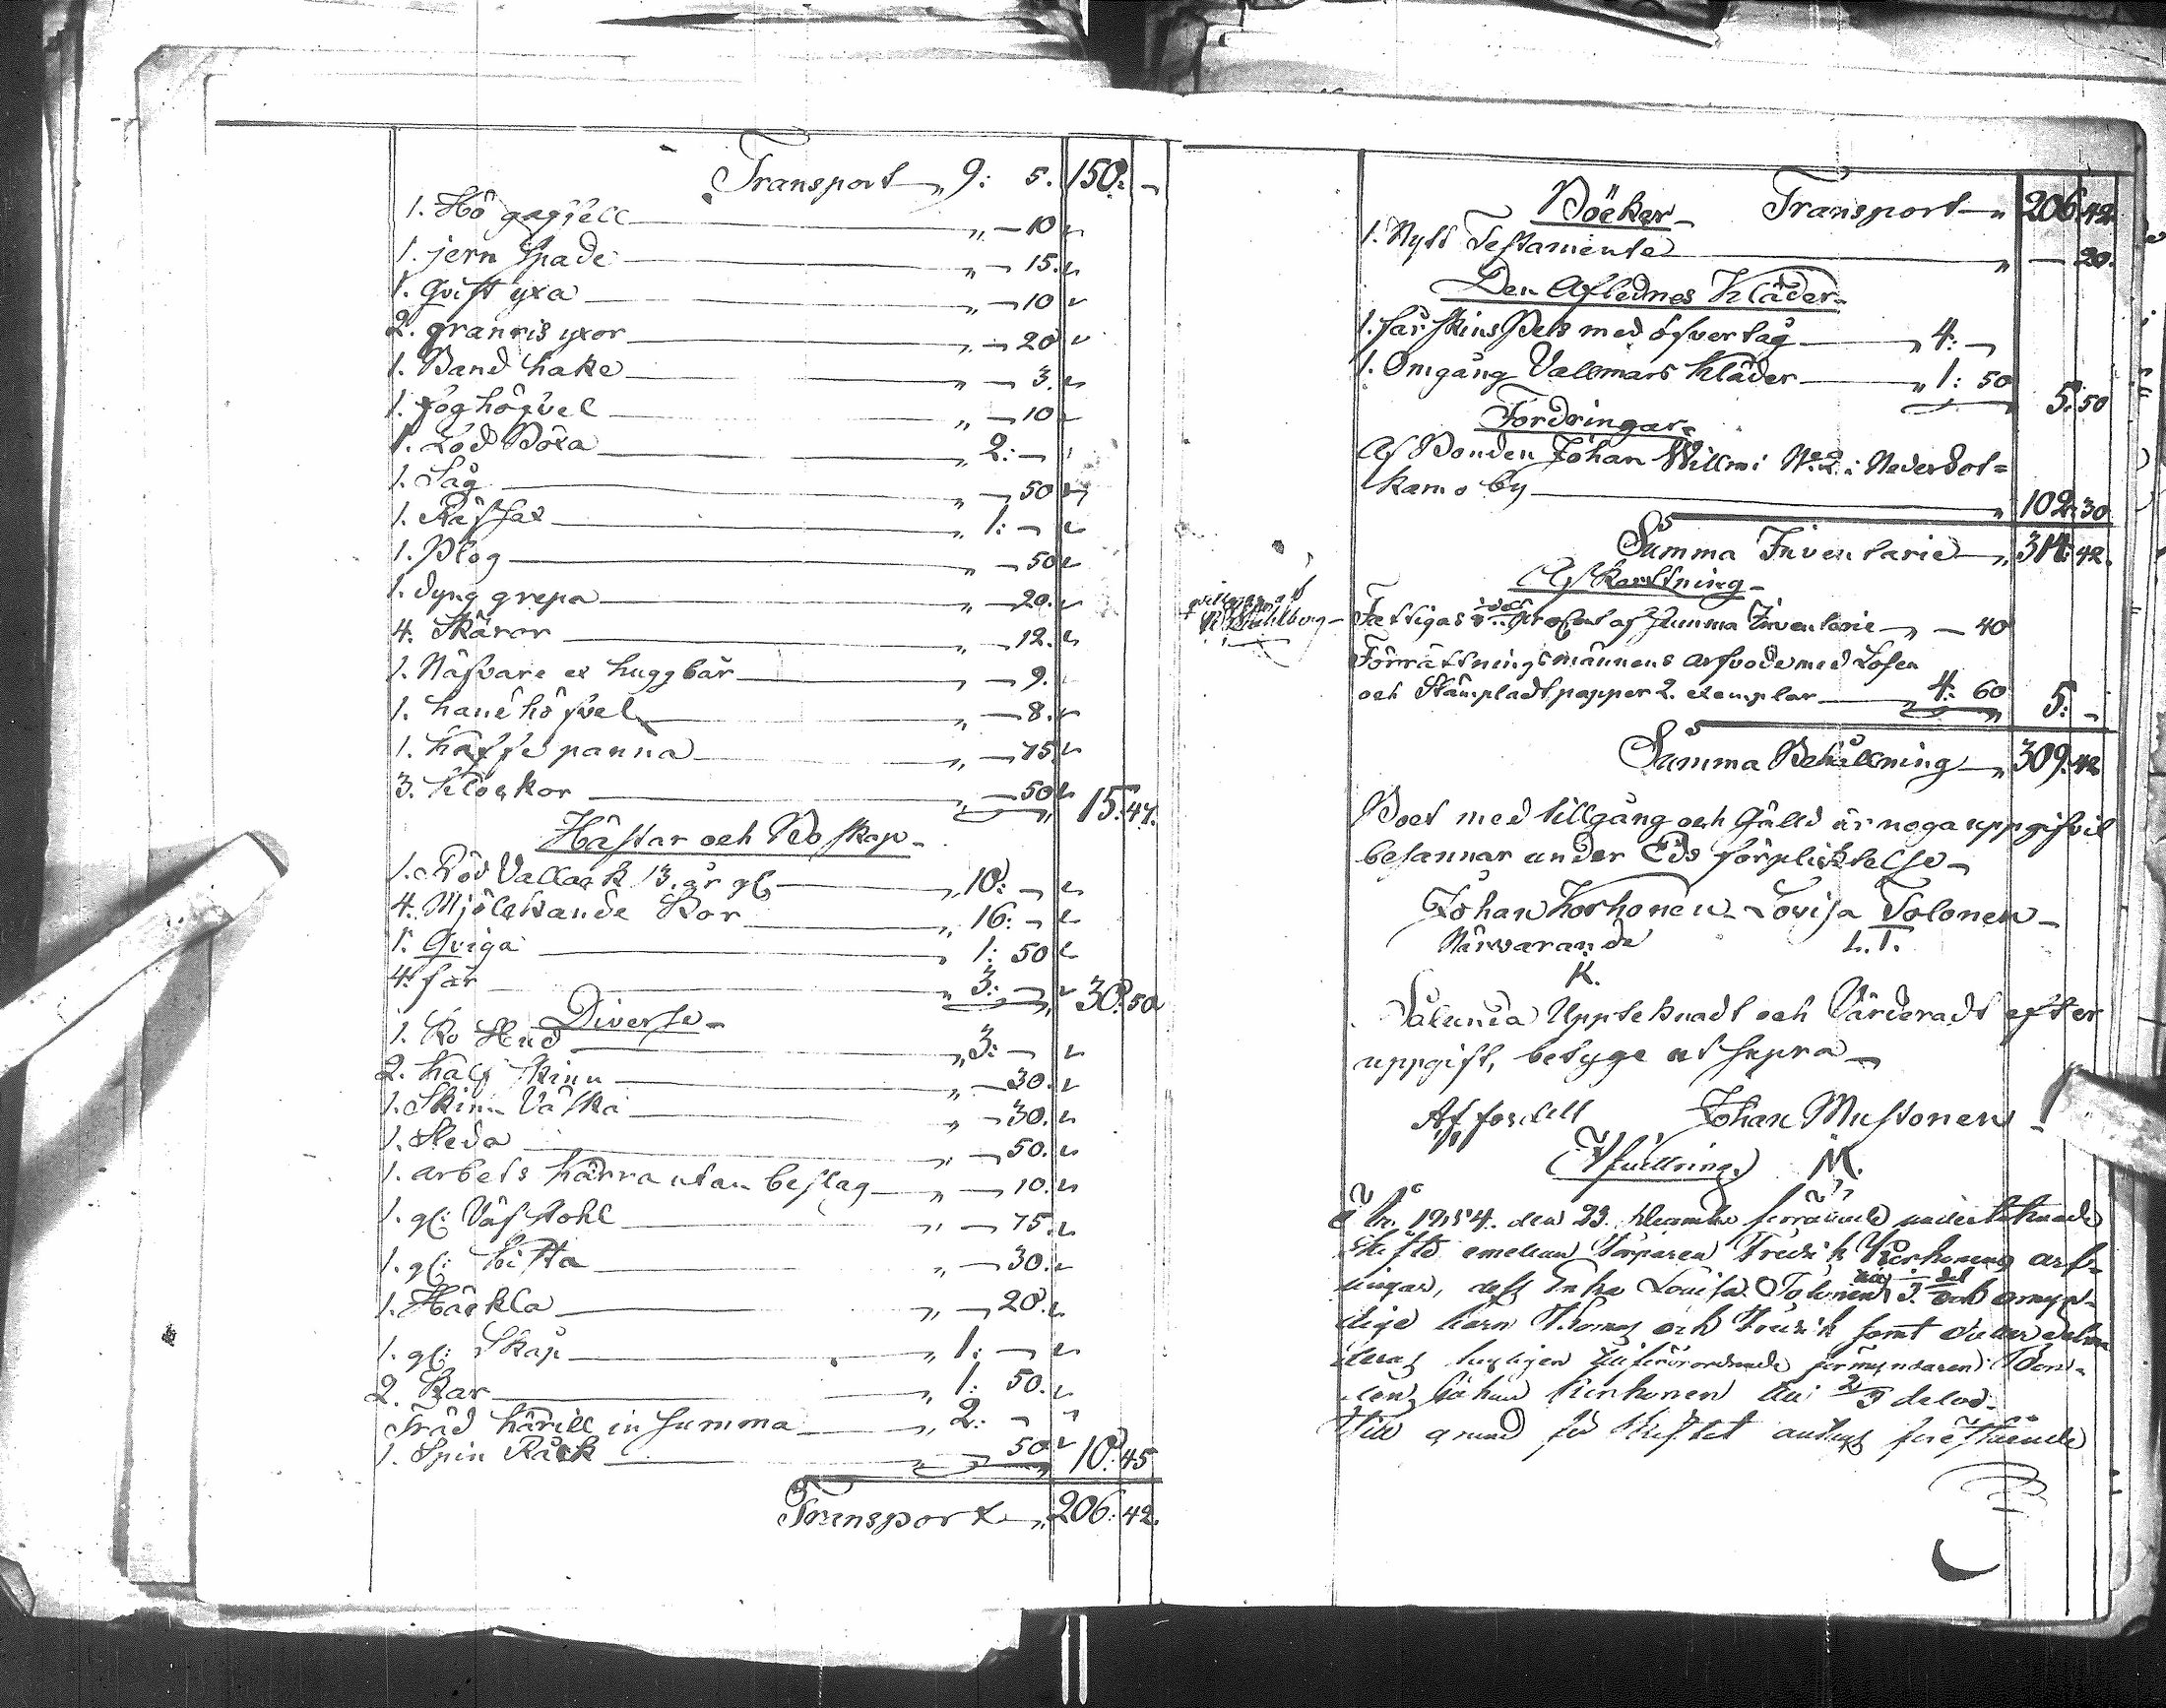 Transport „ 9: 5. 150: –
1. Hö gaffell „ – 10
1. jern Spade „ – 15.
1. Qvist yxa „ – 10
2. granris yxor „ – 20
1. Band hake „ – 3.
1. foghöfvel „ – 10
1. Lod Böxa „ 2: –
1. Såg „ – 50
1. Räfsax „ 1: –
1. Plog „ – 50
1. dyng grepa „ – 20.
4. Skäror „ – 12.
1. Näfvare et huggbår „ – 9.
1. hand höfvel „ – 8.
1. Kaffe panna „ – 75
3. Klåckor „ – 50 15. 47.
Hästar och Boskap
1. Röd Vallack 13. år gl. „ 10: –
4. Mjölckande Kor „ 16: –
1. Qviga „ 1: 50
4. får „ 3: – 30. 50
Diverse
1. Ko Hud „ 3: –
2. Kalf skinn „ – 30.
1. Skinn Väska „ – 30.
1. Släda „ – 50.
1. arbets kärra utan beslag „ – 10.
1. gl: Väfstohl „ – 75.
1. gl: Kista „ – 30.
1. Häckla „ – 20.
1. gl: Skåp „ 1: –
2. Kar „ 1: 50.
Träd kärill in summa „ 2: –
1. Spin Råck „ – 50 10. 45
Transport „ 206: 42.
Böcker Transport „ 206. 42.
1. Nytt Testamente „ – 20.
Den Aflednes Kläder
1. får skins Päls med öfvertåg „ 4: –
1. Omgång Vallmars Kläder „ 1: 50 5. 50
Fordringar
Af Bonden Johan Willmi i Nedersot=
kamo by „ 102. 30
Summa Inventarie „ 314. 42.
Afkortning
Fattigas procent af Summa Inventarie „ – 40
Förrättningsmännens arfvode med Lösen
och Stämpladt papper 2. exemplar „ 4: 60 5: –
Summa Behållning „ 309. 42
Boet med tillgång och Gälld är noga uppgifvit
besannar under Eds förplicktelse
Johan Korhonen Lovisa Tolonen
Närvarande L.T.
K.
Sålunda Upptecknadt och Värderadt efter
uppgift, betyga ut supra
Johan Mustonen
M.
År 1854. den 23. förrättade undertecknade
skifte emellan Torparen Fredrik Korhonens arf-
vingar, dess Enka Lovisa Tolonen
barn Thomas och Fredrik samt
förmyndaren Bon-
den Johan Korhonen till 2/3 delar.
Till grund för skiftet antogs förestående